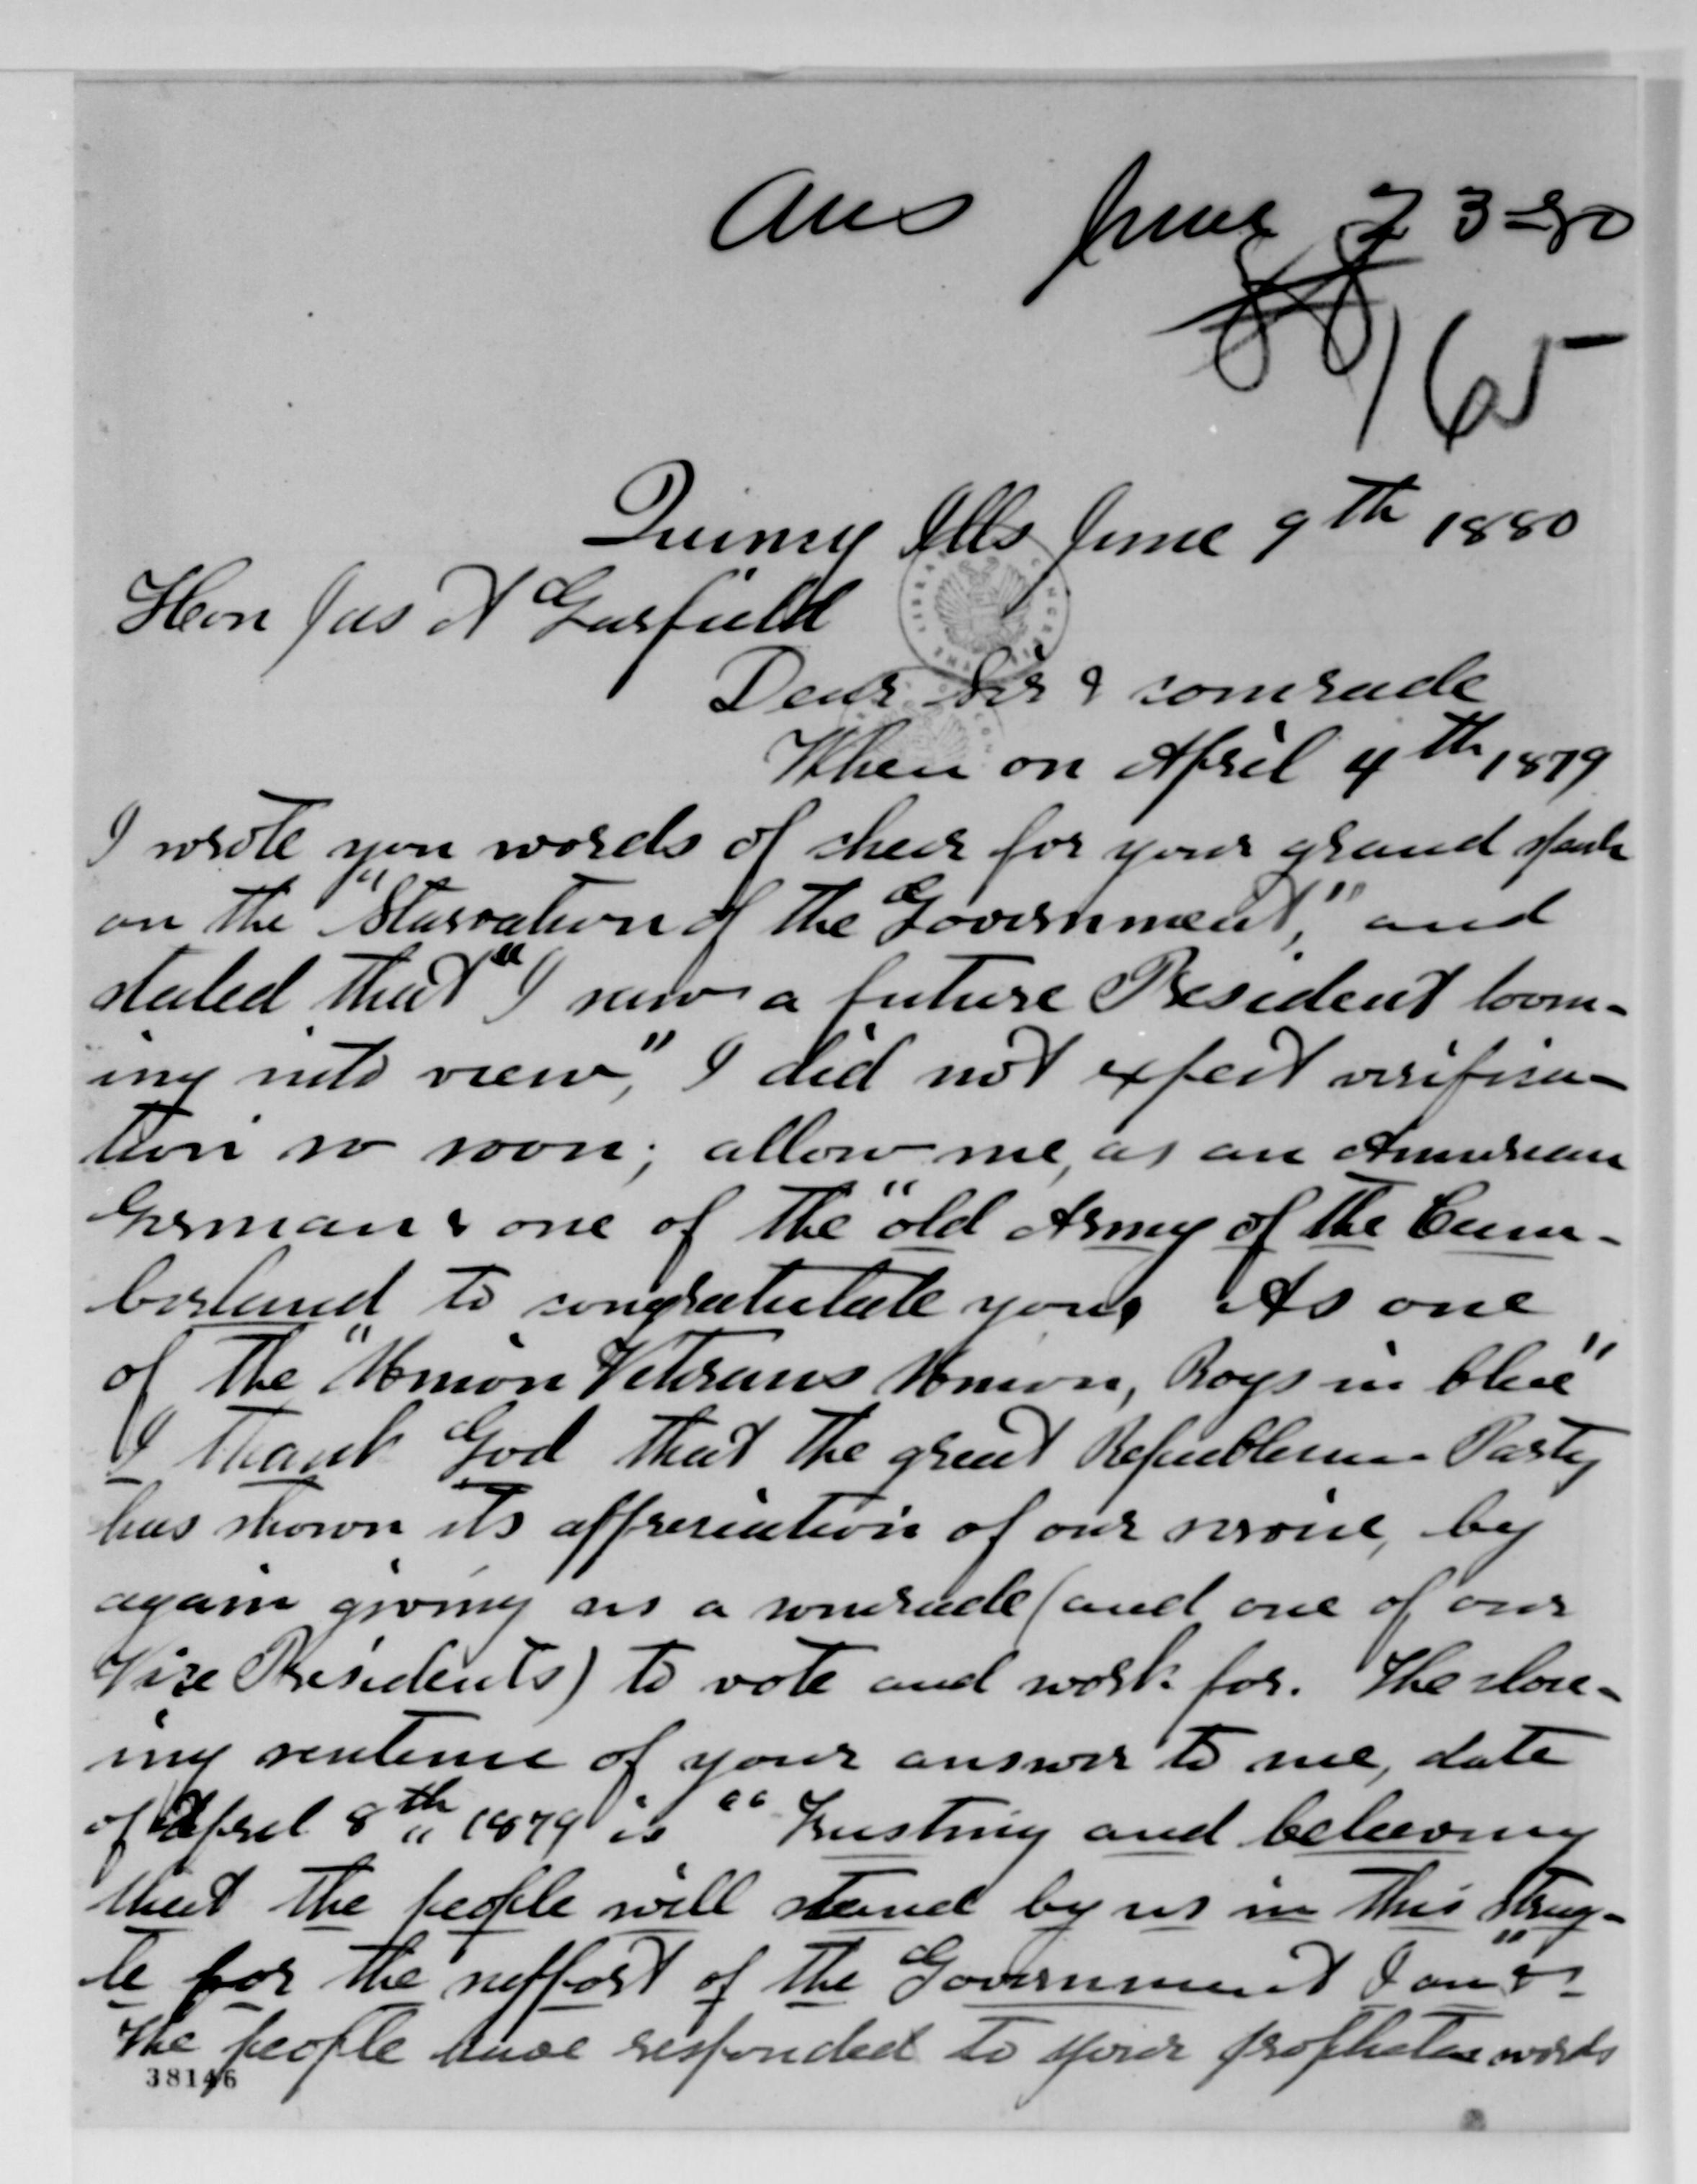 Ans June 23-80
165
Quincy Ills June 9th 1880
Hon Jas A Garfield
Dear Sir & comrade
When on April 4th 1879
I wrote you words of cheer for your grand speech
on the "Starvation of the Government," and
stated that "I saw a future President loom-
ing into view," I did not expect verifica-
tion so soon; allow me, as an American
German & one of the "old Army of the Cum-
berland to congratulate you, As one
of the "Union Veterans Union, Boys in blue"
I thank God that the great Republican Party
has shown its appreciation of our service, by
again giving us a comrade (and one of our
Vice Presidents) to vote and work for. The clos-
ing sentence of your answer to me, date
of April 8th 1879 is "Trusting and believing
that the people will stand by us in this strug-
le for the support of the Government I am" &c
The people have responded to your prophetic words
38146